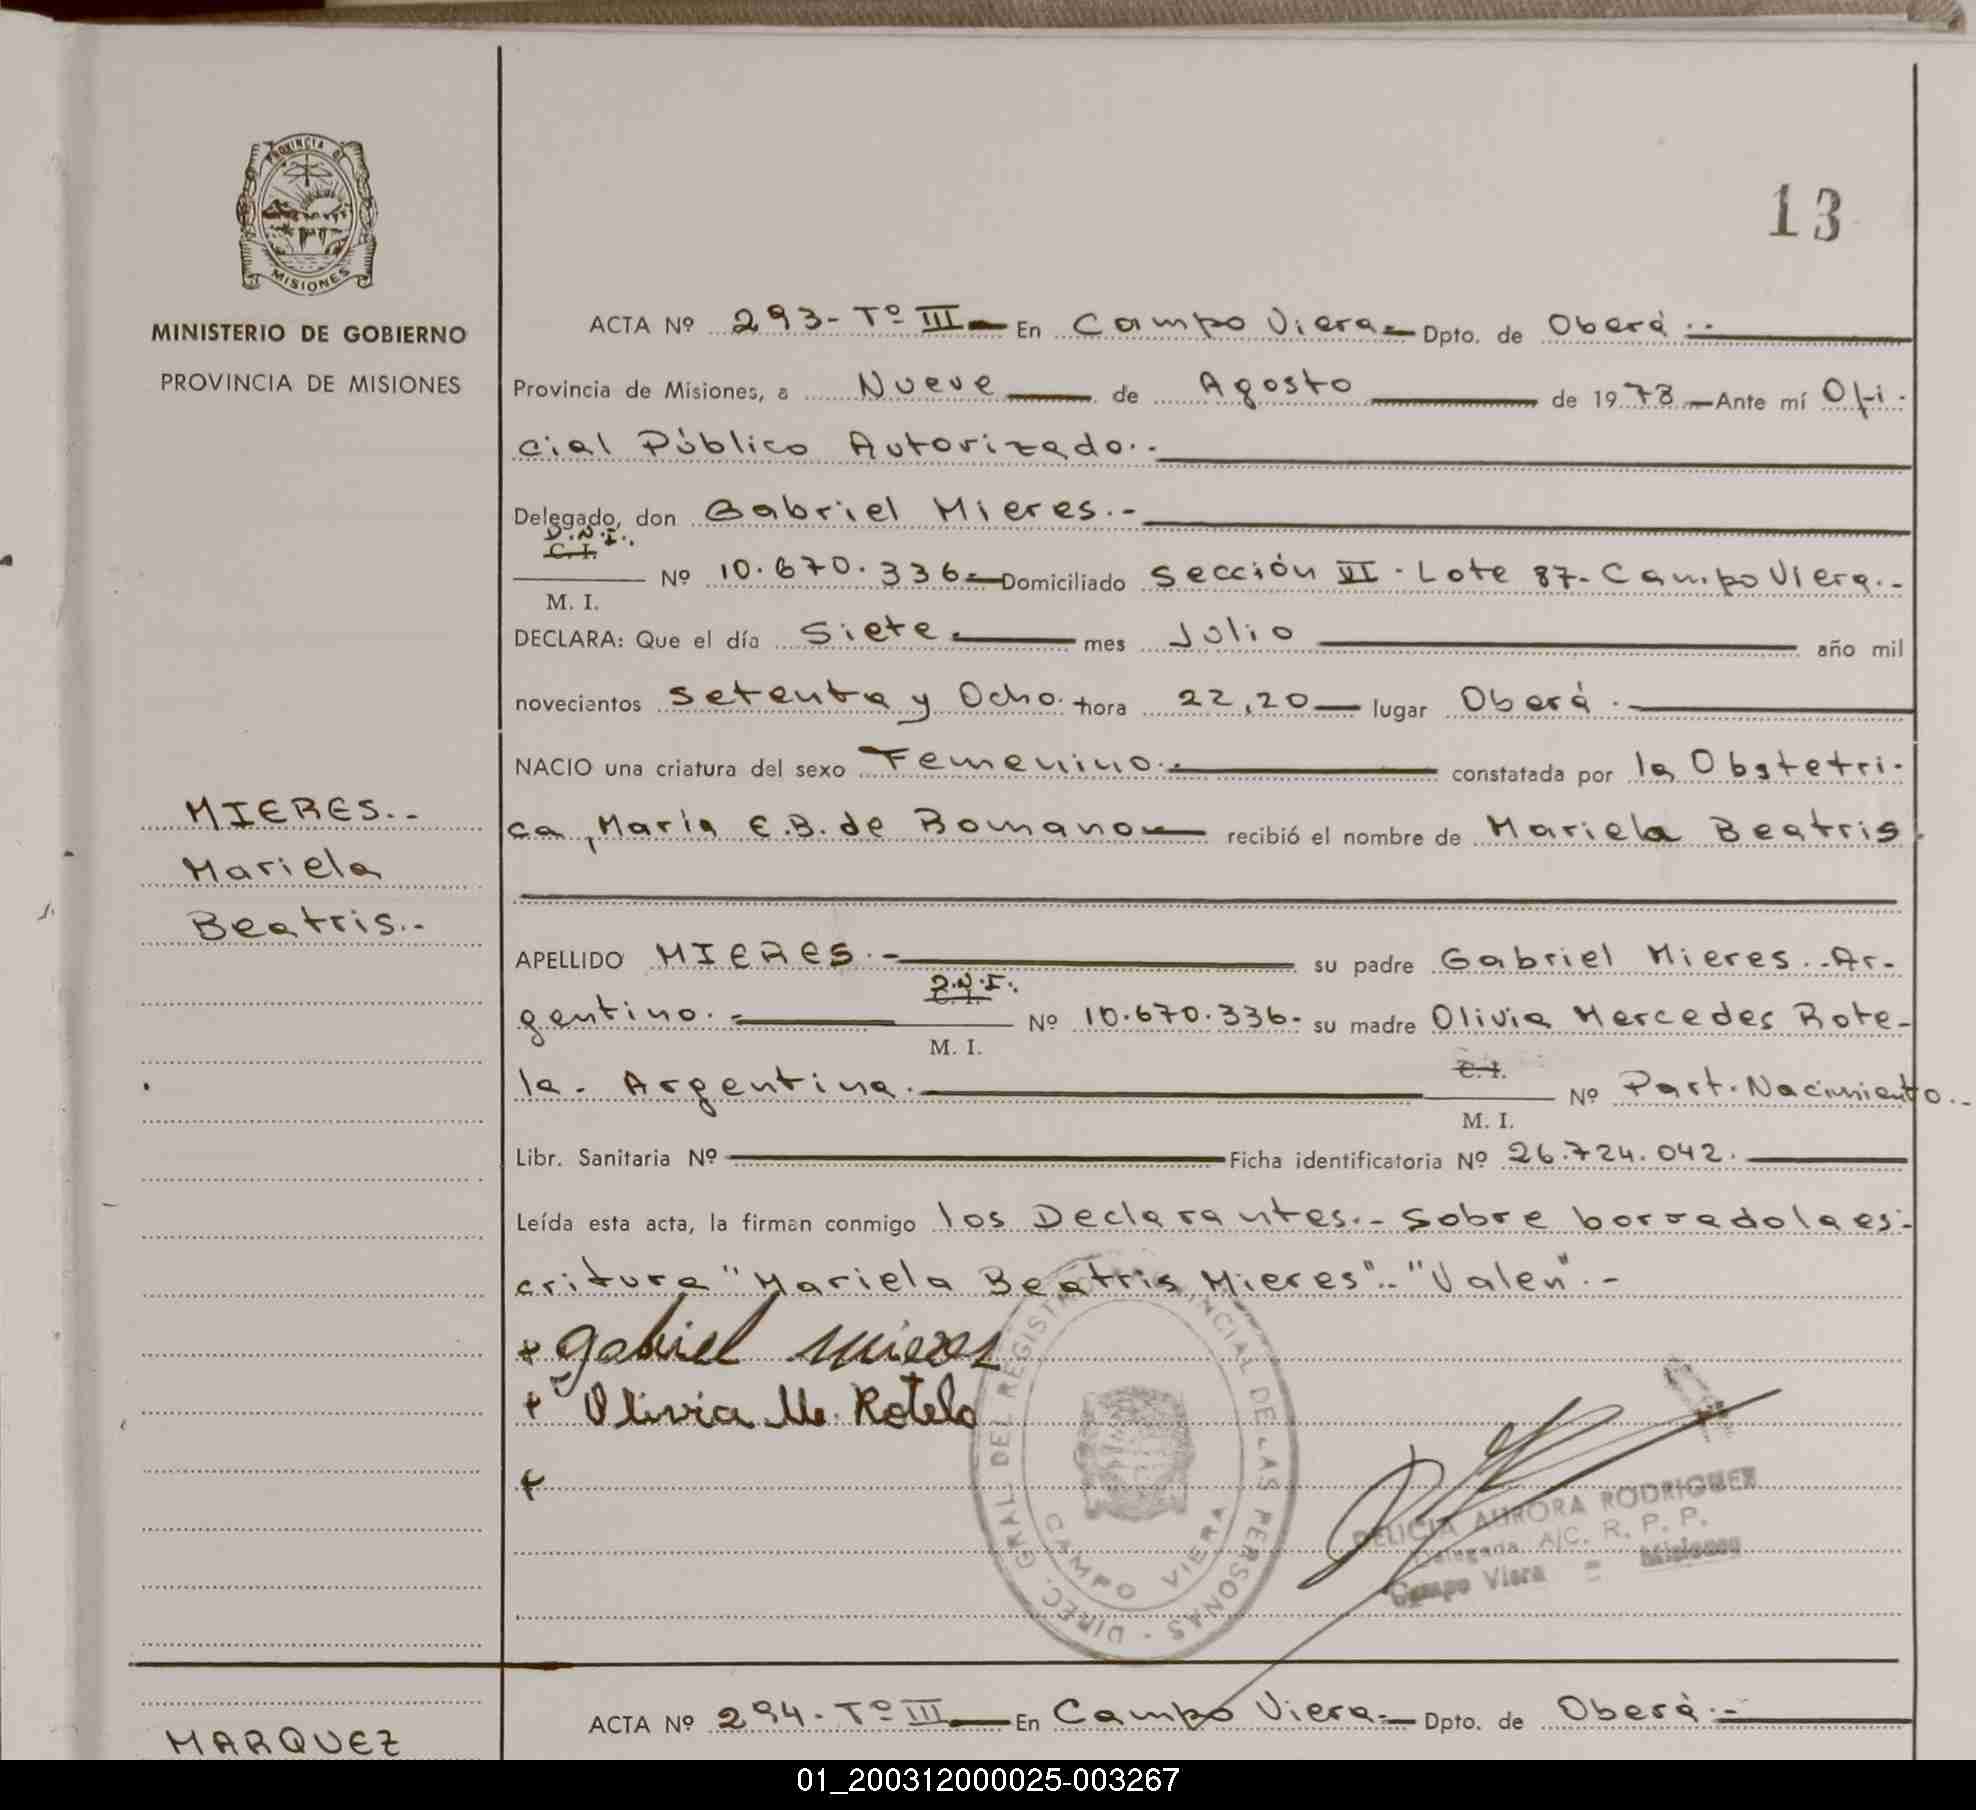 PROVINCIA DE
MISIONES
MINISTERIO DE GOBIERNO
PROVINCIA DE MISIONES
13
ACTA Nº 293 - Tº III — En Campo Viera — Dpto. de Oberá .-
Provincia de Misiones, a Nueve — de Agosto — de 1978 — Ante mí Ofi-
cial Público Autorizado.-
Delegado, don Gabriel Mieres.-
D.N.I.
C. I.
M. I.
Nº 10.670.336 — Domiciliado Sección VI - Lote 87 - Campo Viera.-
DECLARA: Que el día Siete — mes Julio — año mil
novecientos Setenta y Ocho. hora 22,20 — lugar Oberá .-
NACIO una criatura del sexo Femenino.- constatada por la Obstetri-
MIERES.-
Mariela
Beatris.-
ca, María E.B. de Romano — recibió el nombre de Mariela Beatris.
APELLIDO MIERES.- su padre Gabriel Mieres.- Ar-
gentino.- D.N.I. C. I. M. I. Nº 10.670.336- su madre Olivia Mercedes Rote-
la - Argentina. C. I. M. I. Nº Part. Nacimiento.-
Libr. Sanitaria Nº — Ficha identificatoria Nº 26.724.042.
Leída esta acta, la firman conmigo los Declarantes.- Sobre borrado la es-
critura "Mariela Beatris Mieres".- "Valen".-
+ gabriel mieres
+ Olivia M. Rotela
+
DIREC. GRAL. DEL REGISTRO PROVINCIAL DE LAS PERSONAS
CAMPO VIERA
DELICIA AURORA RODRIGUEZ
Delegada A/C. R. P. P.
Campo Viera = Misiones
ACTA Nº 294 - Tº III — En Campo Viera — Dpto. de Oberá .-
MARQUEZ
01_200312000025-003267